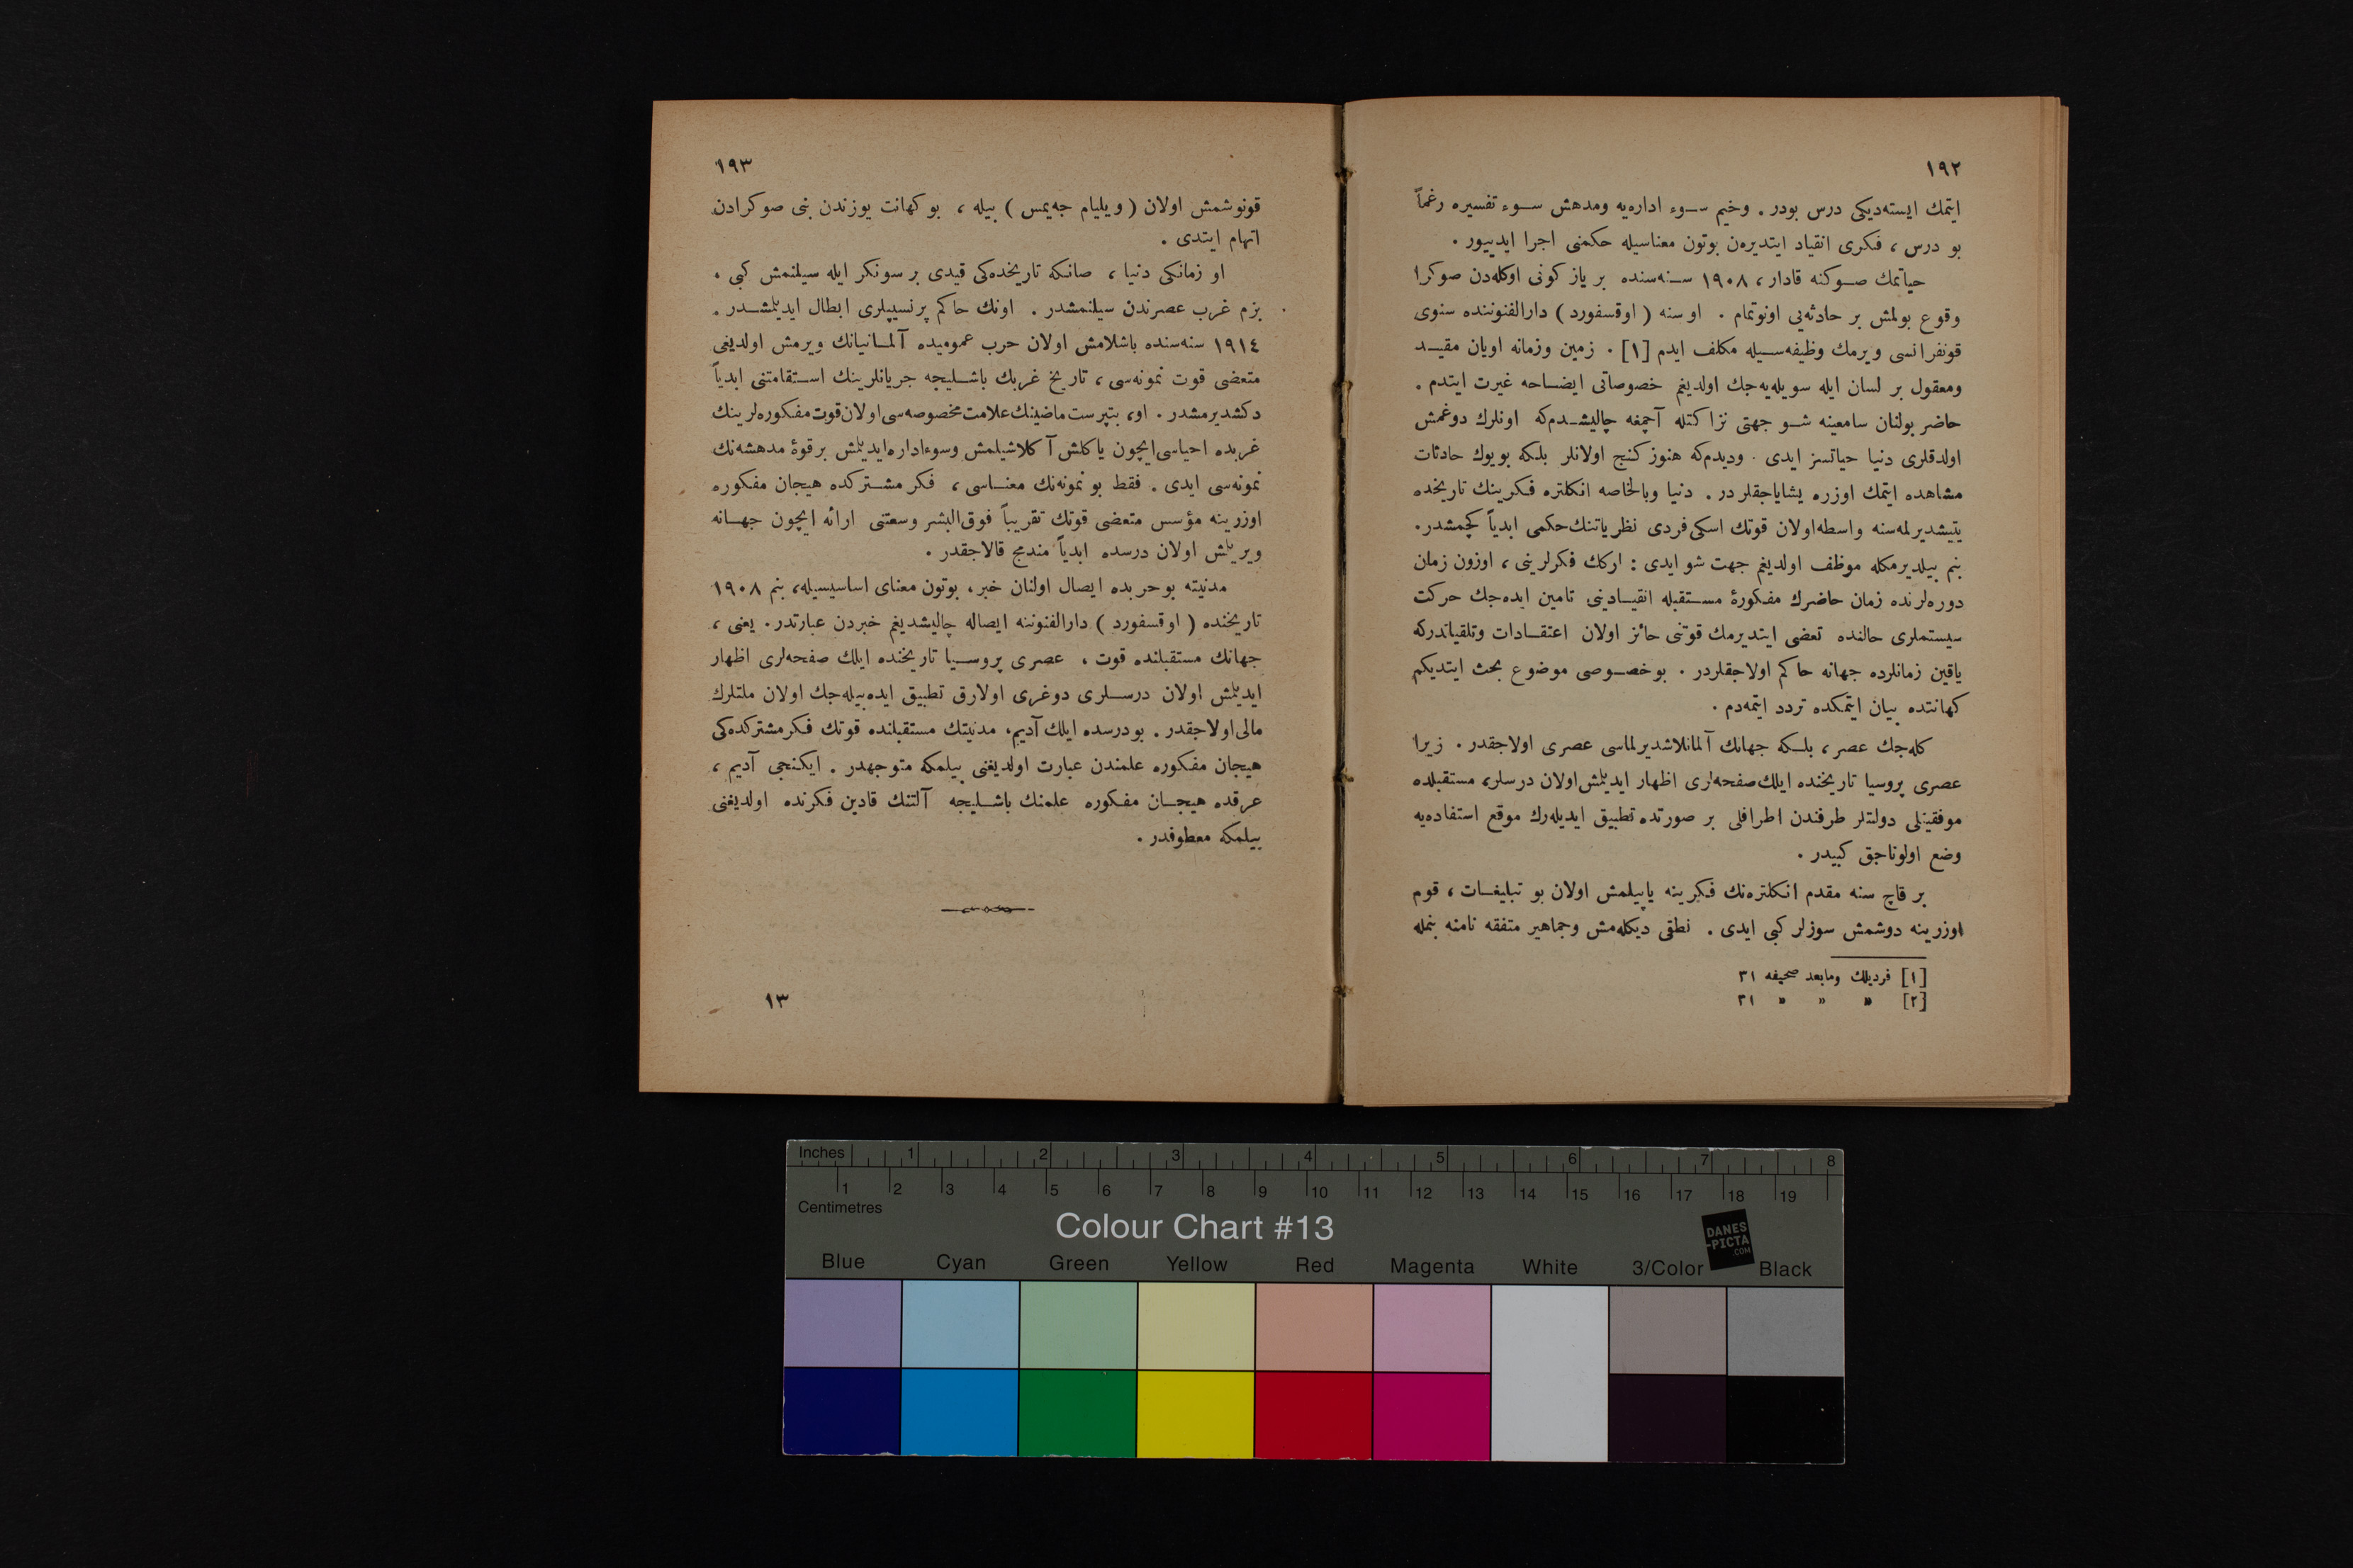 ١٩٢
ایتمك ایسته‌دیكی درس بودر . وخیم سـوء اداره‌یه ومدهش سـوء تفسیره رغماً
بو درس ، فكری انقیاد ایتدیره‌ن بوتون معناسیله حكمنی اجرا ایدییور .
حیاتمك صـوكنه قادار ، ١٩٠٨ سـنه‌سنده بر یاز كونی اوكله‌دن صوكرا
وقوع بولمش بر حادثه‌یی اونوتمام . او سنه ( اوقسفورد ) دارالفنوننده سنوی
قونفرانسی ویرمك وظیفه‌سـیله مكلف ایدم [١] . زمین وزمانه اویان مقیـد
ومعقول بر لسان ایله سویله‌یه‌جك اولدیغم خصوصاتی ایضـاحه غیرت ایتدم .
حاضر بولنان سامعینه شـو جهتی نزاكتله آچمغه چالیشـدم‌كه اونلرك دوغمش
اولدقلری دنیا حیاتسز ایدی . ودیدم‌كه هنوز كنج اولانلر بلكه بویوك حادثات
مشاهده ایتمك اوزره یشایاجقلردر . دنیا وبالخاصه انكلتره فـكرینك تاریخنده
یتیشدیرلمه‌سنه واسطه اولان قوتك اسكی فردی نظریاتنك حكمی ابدیاً كچمشدر.
بنم بیلدیرمكله موظف اولدیغم جهت شو ایدی : اركك فكرلرینی ، اوزون زمان
دوره‌لرنده زمان حاضرك مفـكورهٔ مسـتقبله انقیـادینی تامین ایده‌جك حركت
سیستملری حالنده تعضی ایتدیرمك قوتنی حائز اولان اعتقـادات وتلقیاتدركه
یاقین زمانلرده جهانه حاكم اولاجقلردر . بو خصـوصی موضوع بحث ایتدیكم
كهانتده بیان ایتمكده تردد ایتمه‌دم .
كله‌جك عصر ، بلـكه جهانك آلمانلاشدیرلماسی عصری اولاجقدر . زیرا
عصری پروسیا تاریخنده ایلك صفحه‌لری اظهار ایدیلمش اولان درسلر، مستقبلده
موفقیتلی دولتلر طرفندن اطرافلی بر صورتده تطبیق ایدیله‌رك موقع استفاده‌یه
وضع اولوناجق كبیدر .
بر قاچ سنه مقدم انكلتره‌نك فكرینه یاپیلمش اولان بو تبلیغـات ، قوم
اوزرینه دوشمش سوزلر كبی ایدی . نطقی دیكله‌مش وجماهیر متفقه نامنه بنمله
[١] فردیلك ومابعد صحیفه ٣١
[٢] » » » ٣١
١٩٣
قونوشمش اولان ( ویلیام جه‌یمس ) بیله ، بو كهانت یوزندن بنی صوكرادن
اتهام ایتدی .
او زمانكی دنیا ، صانكه تاریخده‌كی قیدی بر سونكر ایله سیلنمش كبی ،
بزم غرب عصرندن سیلنمشدر . اونك حاكم پرنسیپلری ابطال ایدیلمشـدر .
١٩١٤ سنه‌سنده باشلامش اولان حرب عمومیده آلمـانیانك ویرمش اولدیغی
متعضی قوت نمونه‌سی ، تاریخ غربك باشـلیجه جریانلرینك اسـتقامتنی ابدیاً
دكشدیرمشدر . او، بتپرست ماضینك علامت مخصوصه‌سی اولان قوت مفكوره‌لرینك
غربده احیاسی ایچون یاكلش آكلاشیلمش وسوءاداره ایدیلمش بر قوهٔ مدهشه‌نك
نمونه‌سی ایدی . فقط بو نمونه‌نك معنـاسی ، فكر مشـتركده هیجان مفـكوره
اوزرینه مؤسس متعضی قوتك تقریباً فوق‌البشر وسعتنی ارائه ایچون جهـانه
ویریلمش اولان درسده ابدیاً مندمج قالاجقدر .
مدنیته بو حربده ایصال اولنان خبر ، بوتون معنای اساسیسیله، بنم ١٩٠٨
تاریخنده ( اوقسفورد ) دارالفنوننه ایصاله چالیشدیغم خبردن عبارتدر . یعنی ،
جهانك مستقبلنده قوت ، عصری پروسـیا تاریخنده ایلك صفحه‌لری اظهار
ایدیلمش اولان درسـلری دوغری اولارق تطبیق ایده‌بیله‌جك اولان ملتلرك
مالی اولاجقدر . بودرسده ایلك آدیم، مدنیتك مستقبلنده قوتك فـكرمشتركده‌كی
هیجان مفكوره علمندن عبارت اولدیغنی بیلمكه متوجهدر . ایكنجی آدیم ،
عرقده هیجـان مفـكوره علمنك باشـلیجه آلتنك قادین فكرنده اولدیغنی
بیلمكه معطوفدر .
١٣
Inches 1 2 3 4 5 6 7 8
1 2 3 4 5 6 7 8 9 10 11 12 13 14 15 16 17 18 19
Centimetres
Colour Chart #13
DANES
-PICTA
.COM
Blue Cyan Green Yellow Red Magenta White 3/Color Black